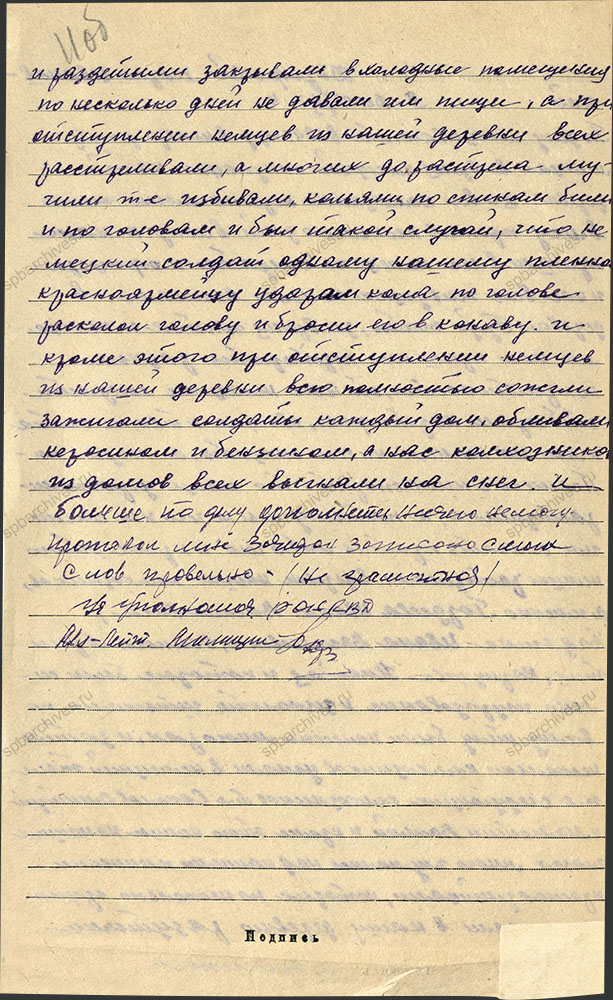 11об
и раздетыми закрывали в холодные помещения
по несколько дней не давали им пищи, а при
отступлении немцев из нашей деревни всех
расстреливали, а многих до растрела му-
чили т-е избивали, кольями по спинам били
и по головам и был такой случай, что не
мецкий солдат одному нашему пленно
красноармейцу ударам кола по голове
расколол голову и бросил его в конаву. и
кроме этого при отступлении немцев
из нашей деревни всю полностью сожгли
зажигали солдаты каждый дом, обливали
керосином и бензином, а нас колхознико
из домов всех выгнали на снег. и
больше по делу дополнить ничего не могу.
протокол мне зачитан записано с моих
слов провельно - (не грамотная)
НКВД
Мл-Лейт.
Подпись
spbarchives.ru
spbarchives.ru
spbarchives.ru
spbarchives.ru
spbarchives.ru
spbarchives.ru